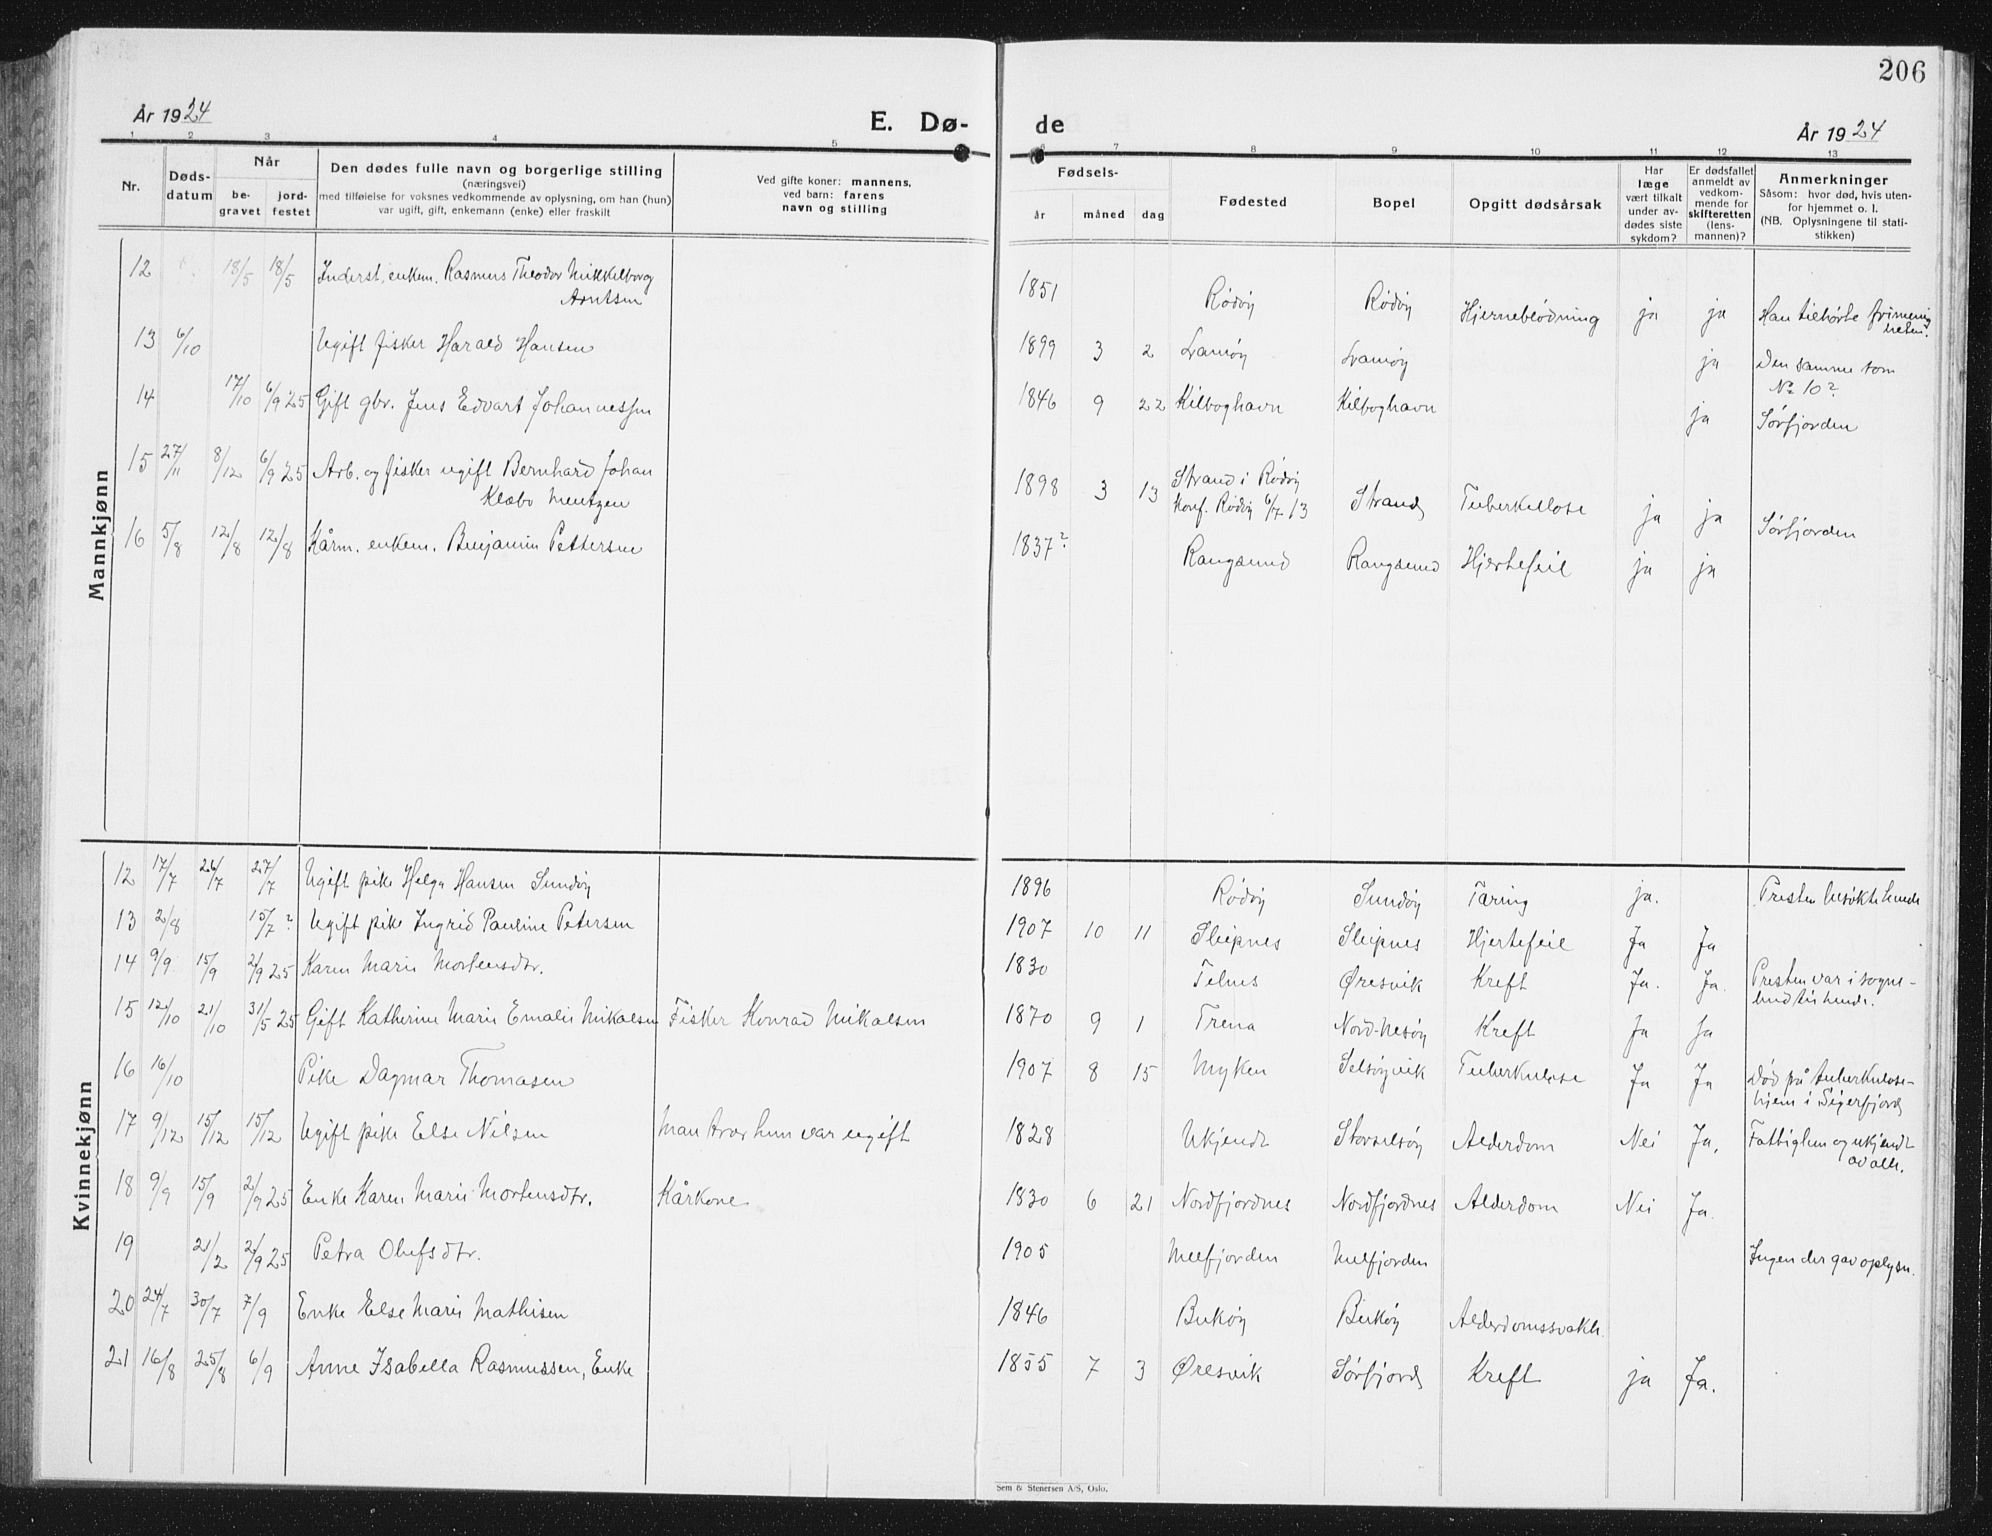 206
År 1924
E. Dø-
de
År 1924
1 2 3 4 5 6 7 8 9 10 11 12 13
Nr.
Døds-
datum
Når
be-
gravet
jord-
festet
Den dødes fulle navn og borgerlige stilling
(næringsvei)
med tilføielse for voksnes vedkommende av oplysning, om han (hun)
var ugift, gift, enkemann (enke) eller fraskilt
Ved gifte koner: mannens,
ved barn: farens
navn og stilling
Fødsels-
år måned dag
Fødested
Bopel
Opgitt dødsårsak
Har
læge
vært tilkalt
under av-
dødes siste
sykdom?
Er dødsfallet
anmeldt av
vedkom-
mende for
skifteretten
(lens-
mannen)?
Anmerkninger
Såsom: hvor død, hvis uten-
for hjemmet o. l.
(NB. Oplysningene til stati-
stikken)
Mannkjønn
12 18/5 18/5 Inderst, enkem. Rasmus Theodor Mikkelborg
Arntsen
1851 Rødøy Rødøy Hjerneblødning ja ja Han tilhørte frimenig
heten.
13 6/10 Ugift fisker Harald Hansen 1899 3 2 ja Den samme som
No 10?
14 17/10 6/9 25 Gift gbr. Jens Edvart Johannessen 1846 9 22 Kilboghavn Kilboghavn ja Sørfjorden
15 27/11 8/12 6/9 25 Arb. og fisker ugift Bernhard Johan
Klæbo Mentzen
1898 3 13 Strand i Rødøy
Konf. Rødøy 6/7 13
Strand Tuberkullose ja ja Sørfjorden
16 5/8 12/8 12/8 Kårm. enkem. Benjamin Pettersen 1837? Rangsund Rangsund Hjertefeil ja ja
Kvinnekjønn
12 17/7 26/7 27/7 Ugift pike Helga Hansen Sundøy 1896 Rødøy Sundøy Tæring ja. Presten besøkte hende
13 2/8 15/7? Ugift pike Ingrid Pauline Petersen 1907 10 11 Sleipnes Sleipnes Hjertefeil Ja Ja
14 9/9 15/9 2/9 25 Karen Marie Mortensdtr. 1830 Telnes Øresvik Kreft Ja. Ja. Presten var i sogne-
bud til hende.
15 12/10 21/10 31/5 25 Gift Katherine Marie Emalie Mikalsen Fisker Konrad Mikalsen 1870 9 1 Trena Nord-Nesøy Kreft Ja Ja
16 16/10 Pike Dagmar Thomasen 1907 8 15 Myken Selsøyvik Tuberkulose Ja Ja Død på tuberkulose-
hjem i Sigerfjord
17 9/12 15/12 15/12 Ugift pike Else Nilsen Man tror hun var ugift 1828 Ukjendt Storselsøy Alderdom Nei Ja. Fattiglem og ukjendt
av alle.
18 9/9 15/9 2/9 25 Enke Karen Marie Mortensdtr. Kårkone 1830 6 21 Nordfjordnes Nordfjordnes Alderdom Nei Ja.
19 21/2 2/9 25 Petra Olufsdtr. 1905 Melfjorden Melfjorden Ingen der gav oplysn.
20 24/7 30/7 7/9 Enke Else Marie Mathisen 1846 Bukøy Bukøy Alderdomssvakh.
21 16/8 25/8 6/9 Anne Isabella Rasmussen, Enke 1855 7 3 Øresvik Sørfjord Kreft ja Ja.
Sem & Stenersen A/S, Oslo.